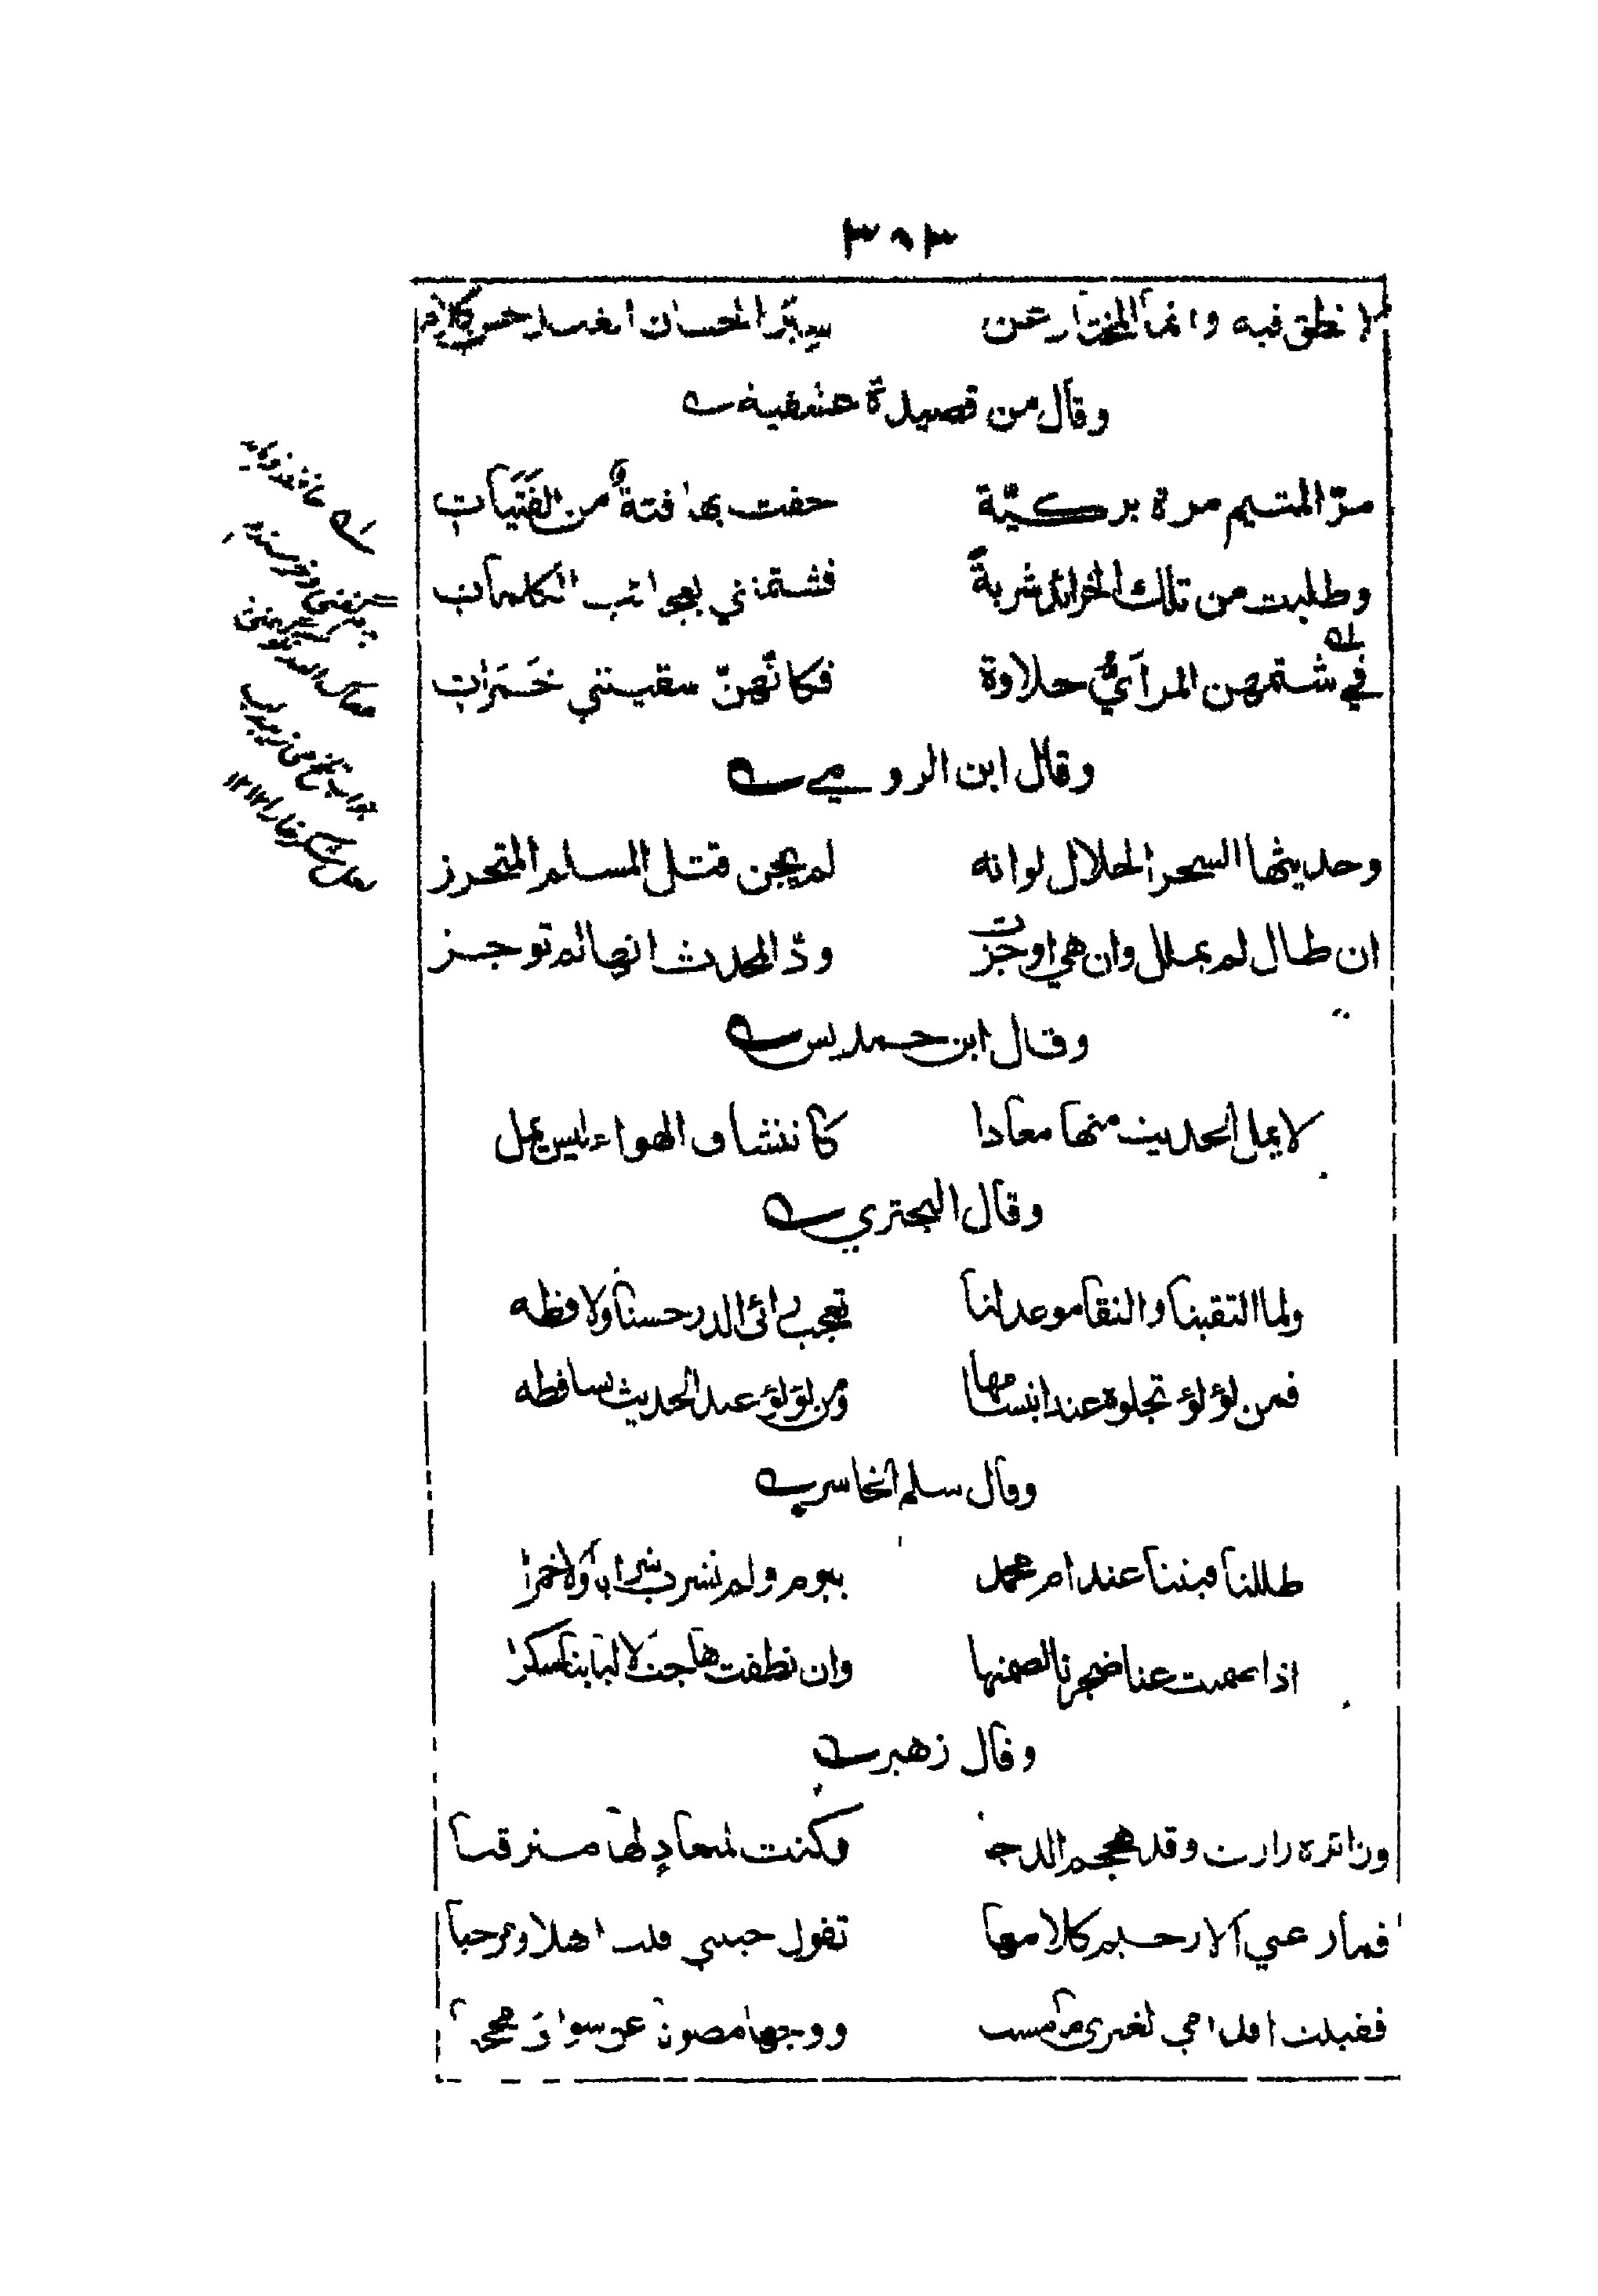 ٣٥٣
لا نطق فيه وانما المختار عن سير الحسان الغيد حسن كلام
وقال من قصيدة عشقية
مرّ المتيم مرة بركيّة حفت بها فتةٌ من الفَتَيَات
وطلبت من تلك الخرائد شربةً فشتمنني بعجوائب الكلمات
في شتمهن المرأيُّ حلاوة فكانّهنّ سقيتني خَمَرات
وقال ابن الرومي
وحديثها السحر الحلال لو انه لم يجن قتل المسلم المتحرز
ان طال لم يملل وان هي اوجزت ودّ المحدث انها لم توجز
وقال ابن حمديس
لا يمل الحديث منها معادا كانتشاق الهواء ليس يمل
وقال البحتري
ولما التقينا والنقا موعد لنا تعجب رائى الدر حسنا ولاقطه
فمن لؤلؤ تجلوه عند ابتسامها ومن لؤلؤ عند الحديث تساقطه
وقال سلم الخاسر
ظللنا فبتنا عند ام محمد بيوم ولم نشرب شرابا ولا خمرا
اذا صمتت عنا ضجرنا لصمتها وان نطقت هاجت لالبابنا سكرا
وقال زهير
وزائرة زارت وقد هجم الدجى وكنت لميعاد لها مترقبا
فما راعني الا رخيم كلامها تقول حبيبي قلت اهلا ومرحبا
فقبلت اقداما لغيري ما مشت ووجها مصونا عن سواي محجبا